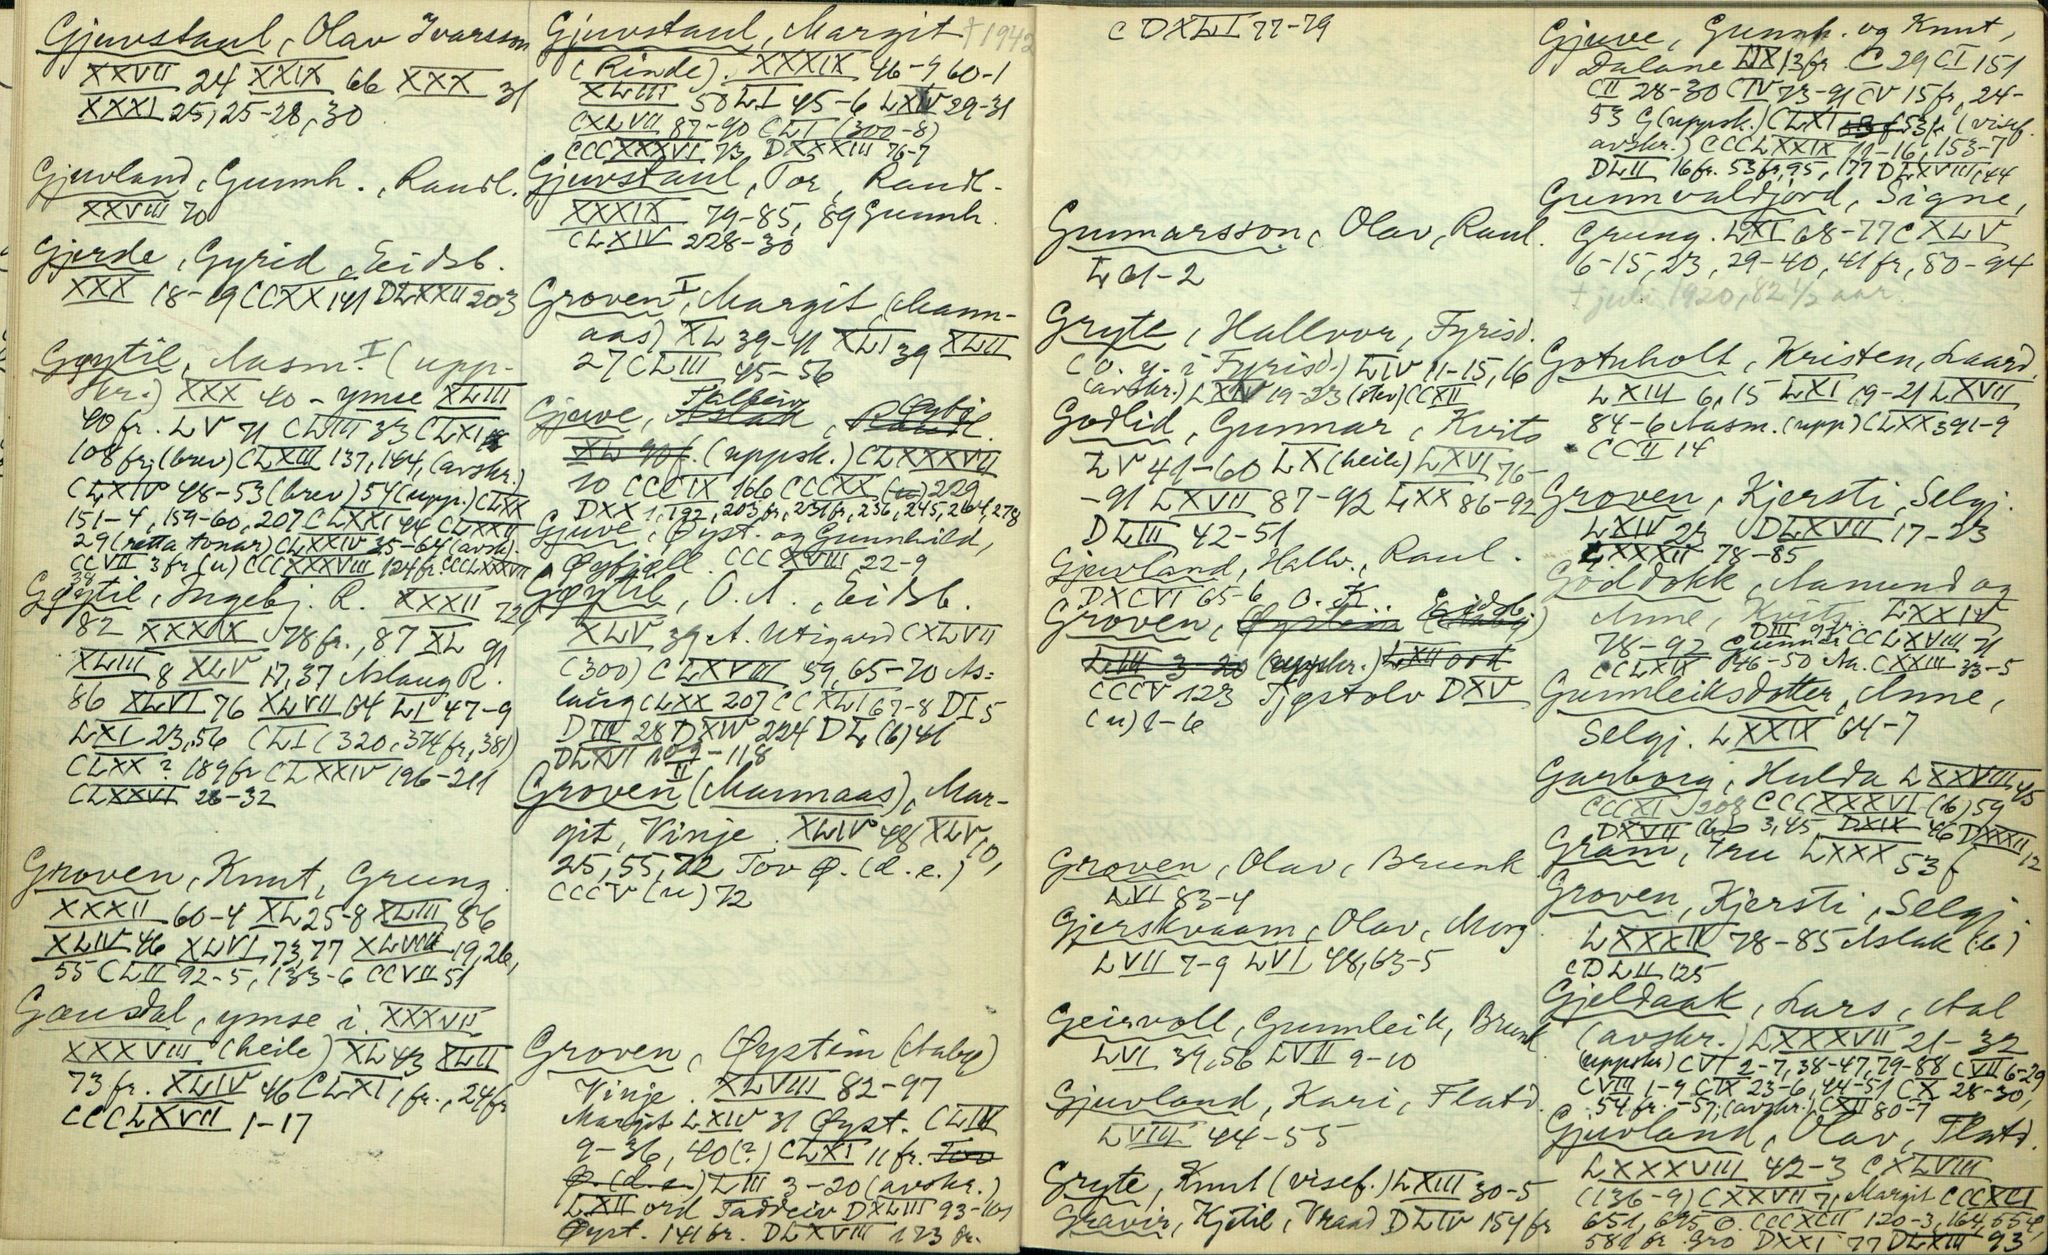 Gjuvstaul, Olav Ivarsson
XXVII 24 XXIX 66 XXX 31
XXXI 25, 25-28, 30
Gjuvland, Gunnh., Raudl.
XXVIII 70
Gjerde, Gyrid, Eidsb.
XXX 18-19 CCXX 141 DLXXII 203
Gøytil, Aasm. I (upp-
skr.) XXX 40 - ymse XLIII
90 fr. LV 71 CLIII 33 CLXI
108 fr, (brev) CLXIII 137, 144, (avskr.)
CLXIV 48-53 (brev) 54 (upp.) CLXX
151-4, 159-60, 207 CLXXI 44 CLXXII
29 (retta tonar) CLXXIV 35-64 (avsk).
CCVII 3 fr (u) CCCXXXVIII 124 fr. CCCLXXVII
38
Gøytil, Ingebj. R. XXXII 72,
82 XXXIX 78 fr., 87 XL 91
XLIII 8 XLV 17, 37 Aslaug R.
86 XLVI 76 XLVII 64 LI 47-9
LXI 23, 56 CLI (320, 374 fr, 381)
CLXX ? 189 fr CLXXIV 196-211
CLXXVI 28-32
Groven, Knut, Grung.
XXXII 60-4 XL 25-8 XLIII 86
XLIV 46 XLVI 73, 77 XLVIII 19, 26,
55 CLII 92-5, 183-6 CCVII 51
Gausdal, ymse i XXXVII
XXXVIII (heile) XL 43 XLII
73 fr. XLIV 46 CLXI 1 fr., 24 fr
CCCLXVII 1-17
Gjuvstaul, Margit † 1942
(Rinde). XXXIX 46-9 60-1
XLIII 50 LI 45-6 LXIV 29-31
CXLVII 87-90 CLI (300-8)
CCCXXXVI 73 DXXXIII 76-7
Gjuvstaul, Tor, Raudl.
XXXIX 79-85, 89 Gunnh.
CLXIV 228-30
Groven I, Margit (Mann-
aas) XL 39-41 XLI 39 XLII
27 CLIII 45-56
Gjuve,
XL 90 f. (uppsk.) CLXXXVII
10 CCCIX 166 CCCXX (u) 229
DXX 1, 192, 203 fr, 231 fr, 236, 245, 264, 278
Gjuve, Øyst. og Gunnhild,
Øyfjell. CCCXVIII 22-9
Gøytil, O. A., Eidsb.
XLV 39 A. Utigard CXLVII
(300) CLXVIII 59, 65-70 As=
laug CLXX 207 CCXLI 67-8 DI 5
DIII 28 DXIV 224 DL (6) 41
DLXVI 107-118
Groven II (Mannaas), Mar-
git, Vinje. XLIV 48 XLV 10,
25, 55, 72 Tov Ø. (d. e.)
CCCV (u) 72
Groven, Øystein (Aabø)
Vinje. XLVIII 82-97
Margit LXIV 31 Øyst. CLIII
9-36, 40 (?) CLXI 11 fr. Tov
Ø. (d.e.) LIII 3-20 (avskr.)
LXII ord Taddeiv DXLIII 93-101
Øyst. 141 fr. DLXVIII 123 fr.
CDXLI 77-79
Gunnarsson, Olav, Raul.
L 61-2
Gryte, Hallvor, Fyrisd.
(O. g. i Fyrisd.) LIV 11-15, 16
(avskr.) LXIV 19-23 (stev) CCXII
Godlid, Gunnar, Kvits
LV 41-60 LX (heile) LXVI 76-
-91 LXVII 87-92 LXX 86-92
DLIII 42-51
Gjuvland, Hallv., Raul.
DXCVI 65-6
Groven, Øystein
LIII 3-20 (uppskr.) LXII ord
CCCV 123 Tjøstolv DXV
(u) 1-6
Groven, Olav, Brunk
LVI 83-4
Gjerskvaam, Olav, Morg.
LVII 7-9 LVI 48, 63-5
Geirvoll, Gunnleik, Brunk
LVI 39, 56 LVII 9-10
Gjuvland, Kari, Flatd.
LVIII 44-55
Gryte, Knut (visef.) LXIII 30-5
Gravir, Kjetil, Vraad DLIV 154 fr
Gjuve, Gunnh. og Knut,
Dalane LIX 13 fr. C 29 CI 151
CII 28-30 CIV 73-91 CV 15 fr, 24-
53 G (uppsk.) CLXI 53 fr (visef.
avskr.) CCCLXXIX 11-16, 153-7
DLII 16 fr. 53 fr, 95, 177 DLXVIII 144
Gunnvaldjord, Signe,
Grung. LXI 68-77 CXLV
6-15, 23, 29-40, 41 fr, 80-94
† juli 1920, 82 1/2 aar.
Gotuholt, Kristen, Laard.
LXIII 6, 15 LXI 19-21 LXVII
84-6 Aasm. (upp) CLXX 391-9
CCII 14
Groven, Kjersti, Selgj.
LXIV 23 DLXVII 17-23
LXXXII 78-85
Goddokk, Aamund og
Anne, Kvits. LXXIV
DIII 9 fr.
78-92 Gunnar CCLXVIII 71
CCLXIX 46-50 Aa. CXXIII 33-5
Gunnleiksdotter, Anne,
Selgj. LXXIX 64-7
Garborg, Hulda LXXVIII 45
CCCXI 208 CCCXXXVI (6) 59
DXVII (6) 3, 45 DXIX 46 DXXXII 12
Gram, Fru LXXX 53 f
Groven, Kjersti, Selgj.
LXXXII 78-85 Aslak (6)
CDLII 125
Gjeldaak, Lars, Aal
(avskr.) LXXXVII 21-32
(uppskr) CVI 2-7, 38-47, 79-88 CVII 6-29
CVIII 1-9 CIX 23-6, 44-51 CX 28-30,
54 fr. -57, (avskr.) CXII 80-7
Gjuvland, Olav, Flatd.
LXXXVIII 42-3 CXLVIII
(136-9) CXXVII 7, Margit CCCXCI
651, 695 O. CCCXCII 120-3, 164, 554,
581 fr Gro DXXI 77 DLXIII 93